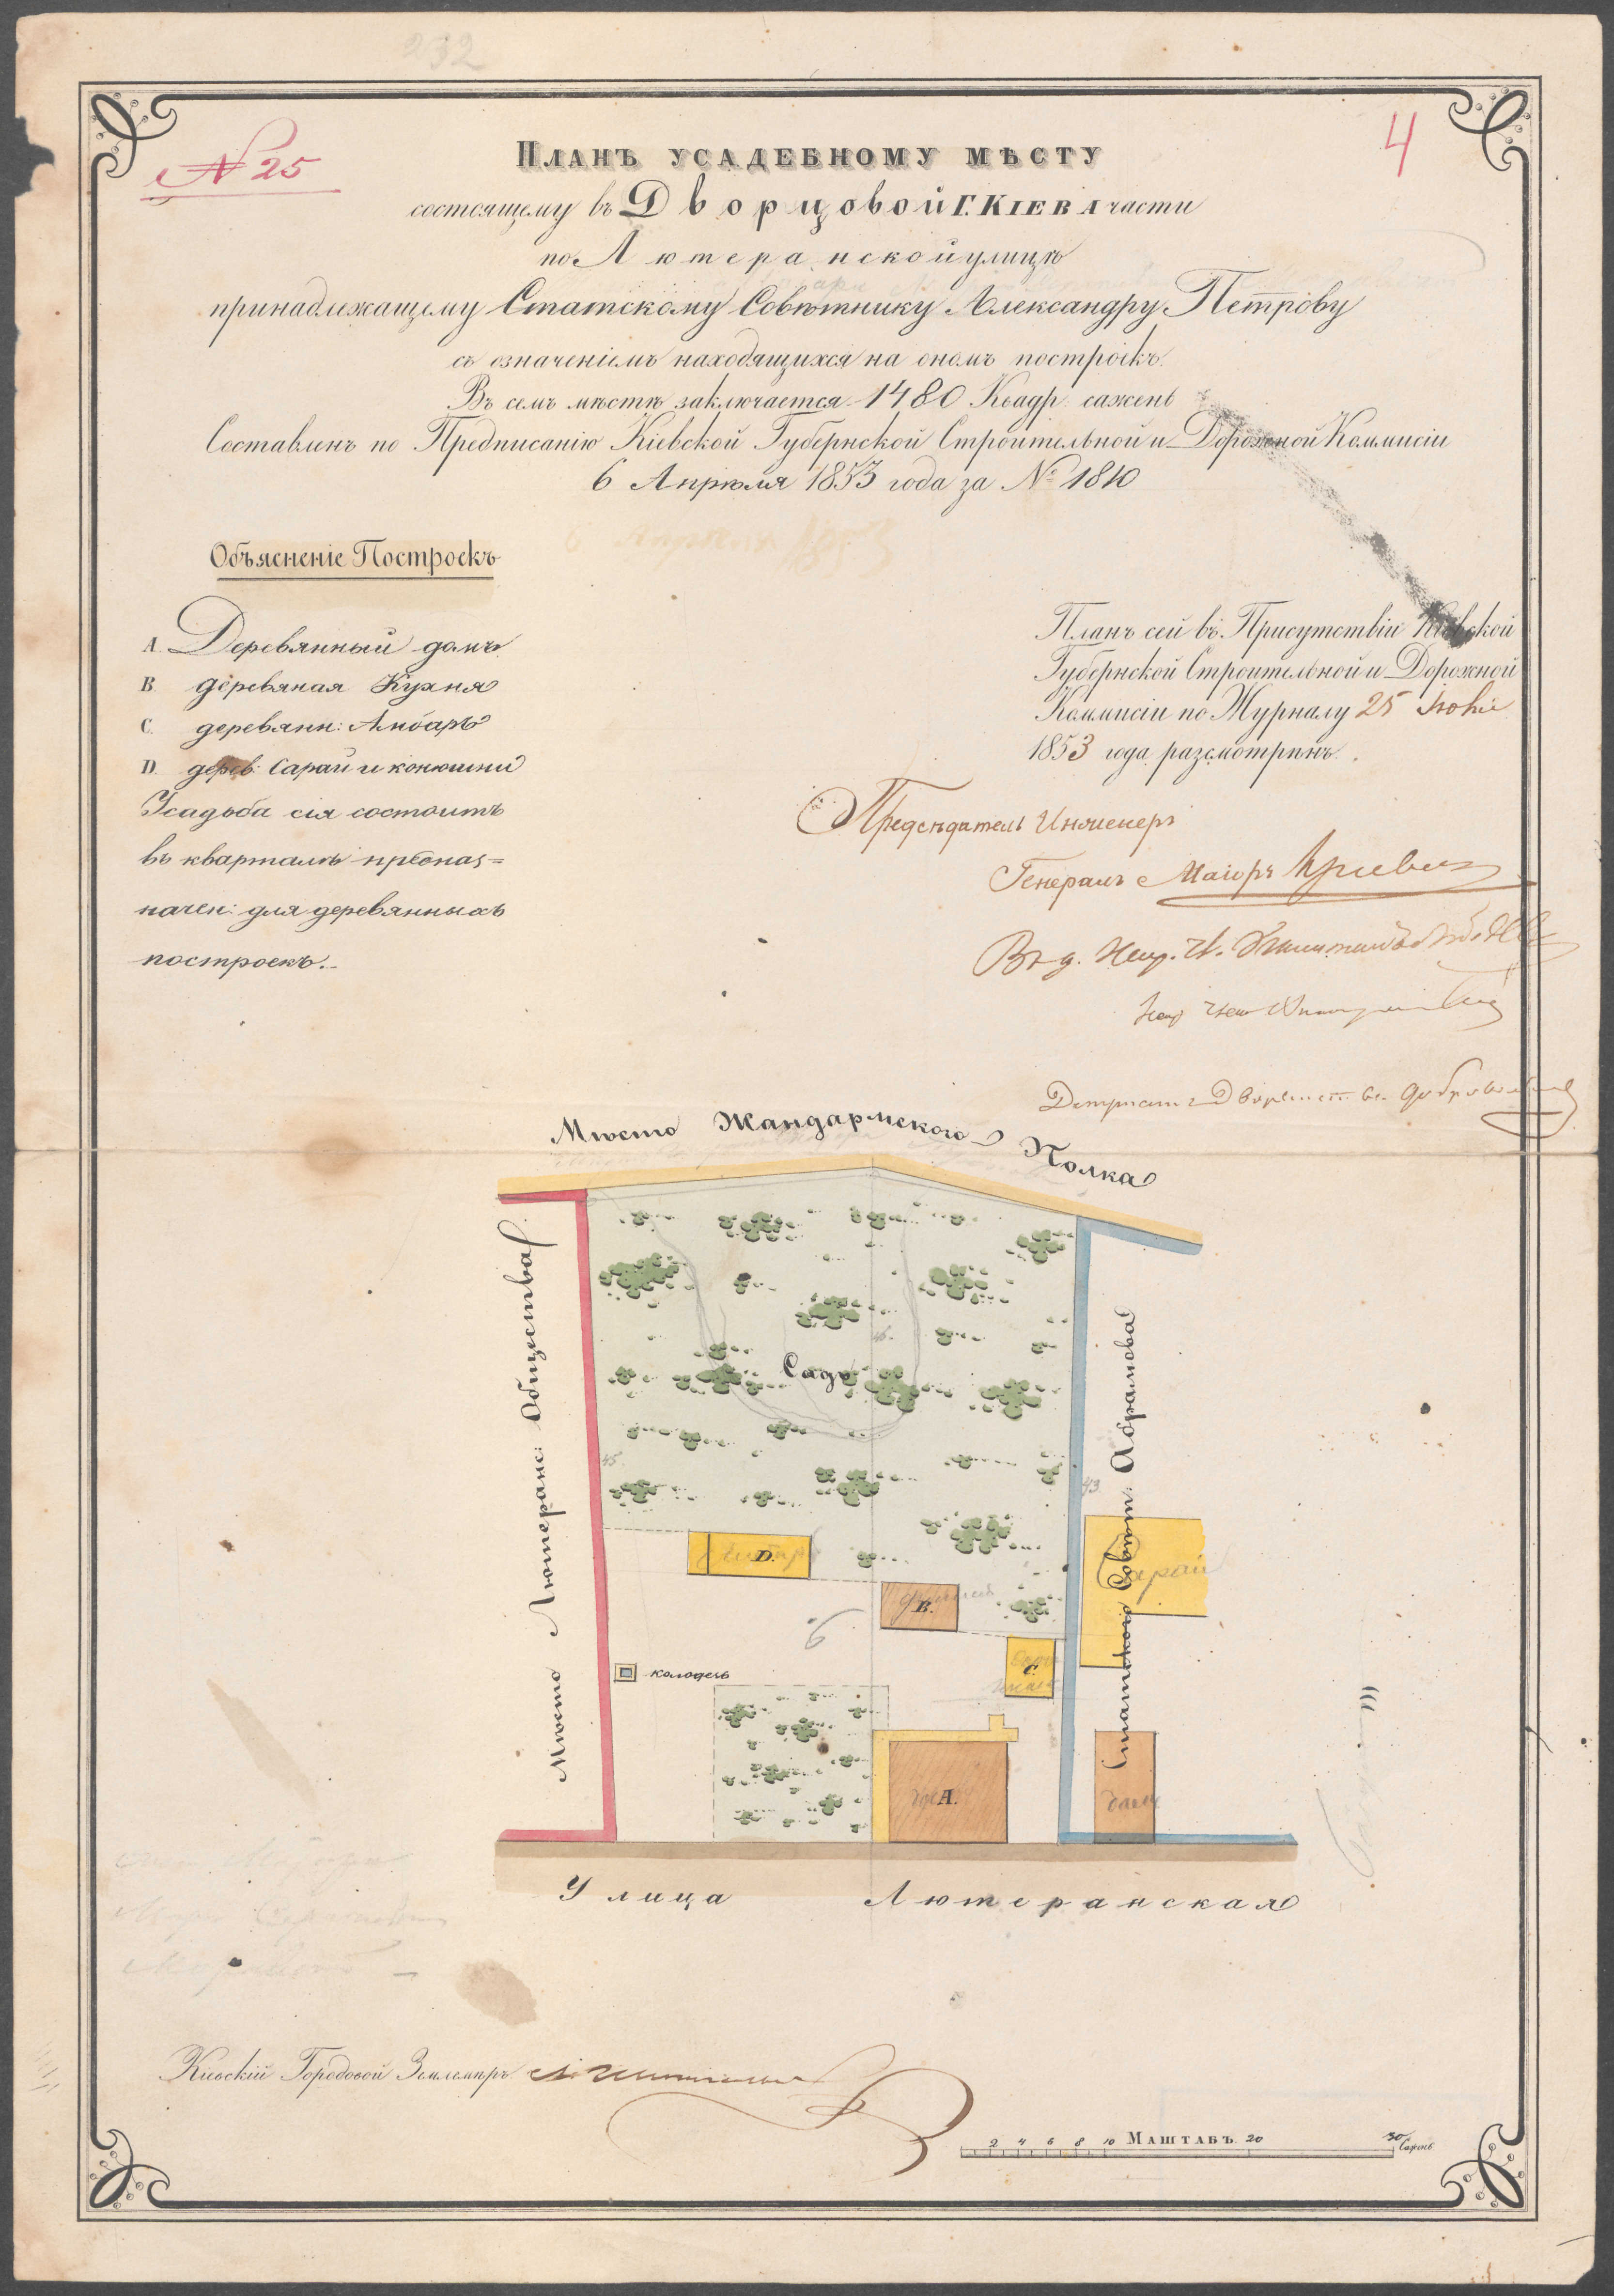 232
№ 25
4
Планъ усадебному мѣсту
состоящему въ Дворцовой Г. Кіева части
по Лютеранской улицѣ
принадлежащему Статскому Совѣтнику Александру Петрову
съ означеніемъ находящихся на ономъ построекъ.
Въ семъ мѣстѣ заключается 1480 Квадр. сажень
Составленъ по Предписанію Кіевской Губернской Строительной и Дорожной Коммисіи
6 Апрѣля 1853 года за № 1810
6 Апрѣля 1853
Объясненіе Построекъ
А. Деревянный домъ
В. деревяная Кухня
С. деревянн: Амбаръ
D. дерев: Сарай и конюшни
Усадьба сія состоитъ
въ кварталѣ предназ=
начен: для деревянныхъ
построекъ.
Планъ сей въ Присутствіи Кіевской
Губернской Строительной и Дорожной
Коммисіи по Журналу 25 Іюня
1853 года разсмотрѣнъ.
Предсѣдатель Инженеръ
Генералъ Маіоръ
Мѣсто Жандармского Полка
Мѣсто Лютеранс: Общества
Садъ
46.
45.
43.
Статского Совѣт: Абрамова
Сарай
D.
В.
С.
6
колодезь
А.
домъ
Улица Лютеранская
Кіевскій Городовой Землемѣръ
2 4 6 8 10 Маштабъ 20 30 Сажень